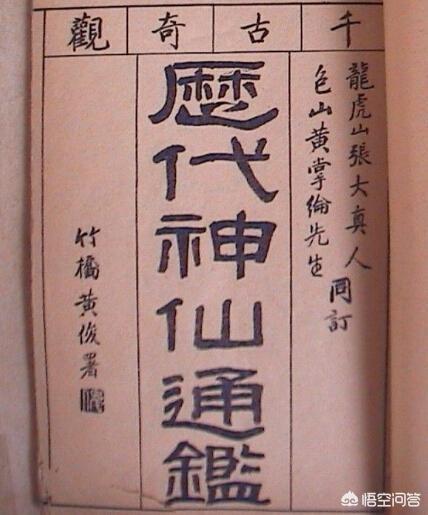 千古奇觀
龍虎山張大真人
包山黃掌綸先生
同訂
歷代神仙通鑑
竹橋黃俊署
悟空问答